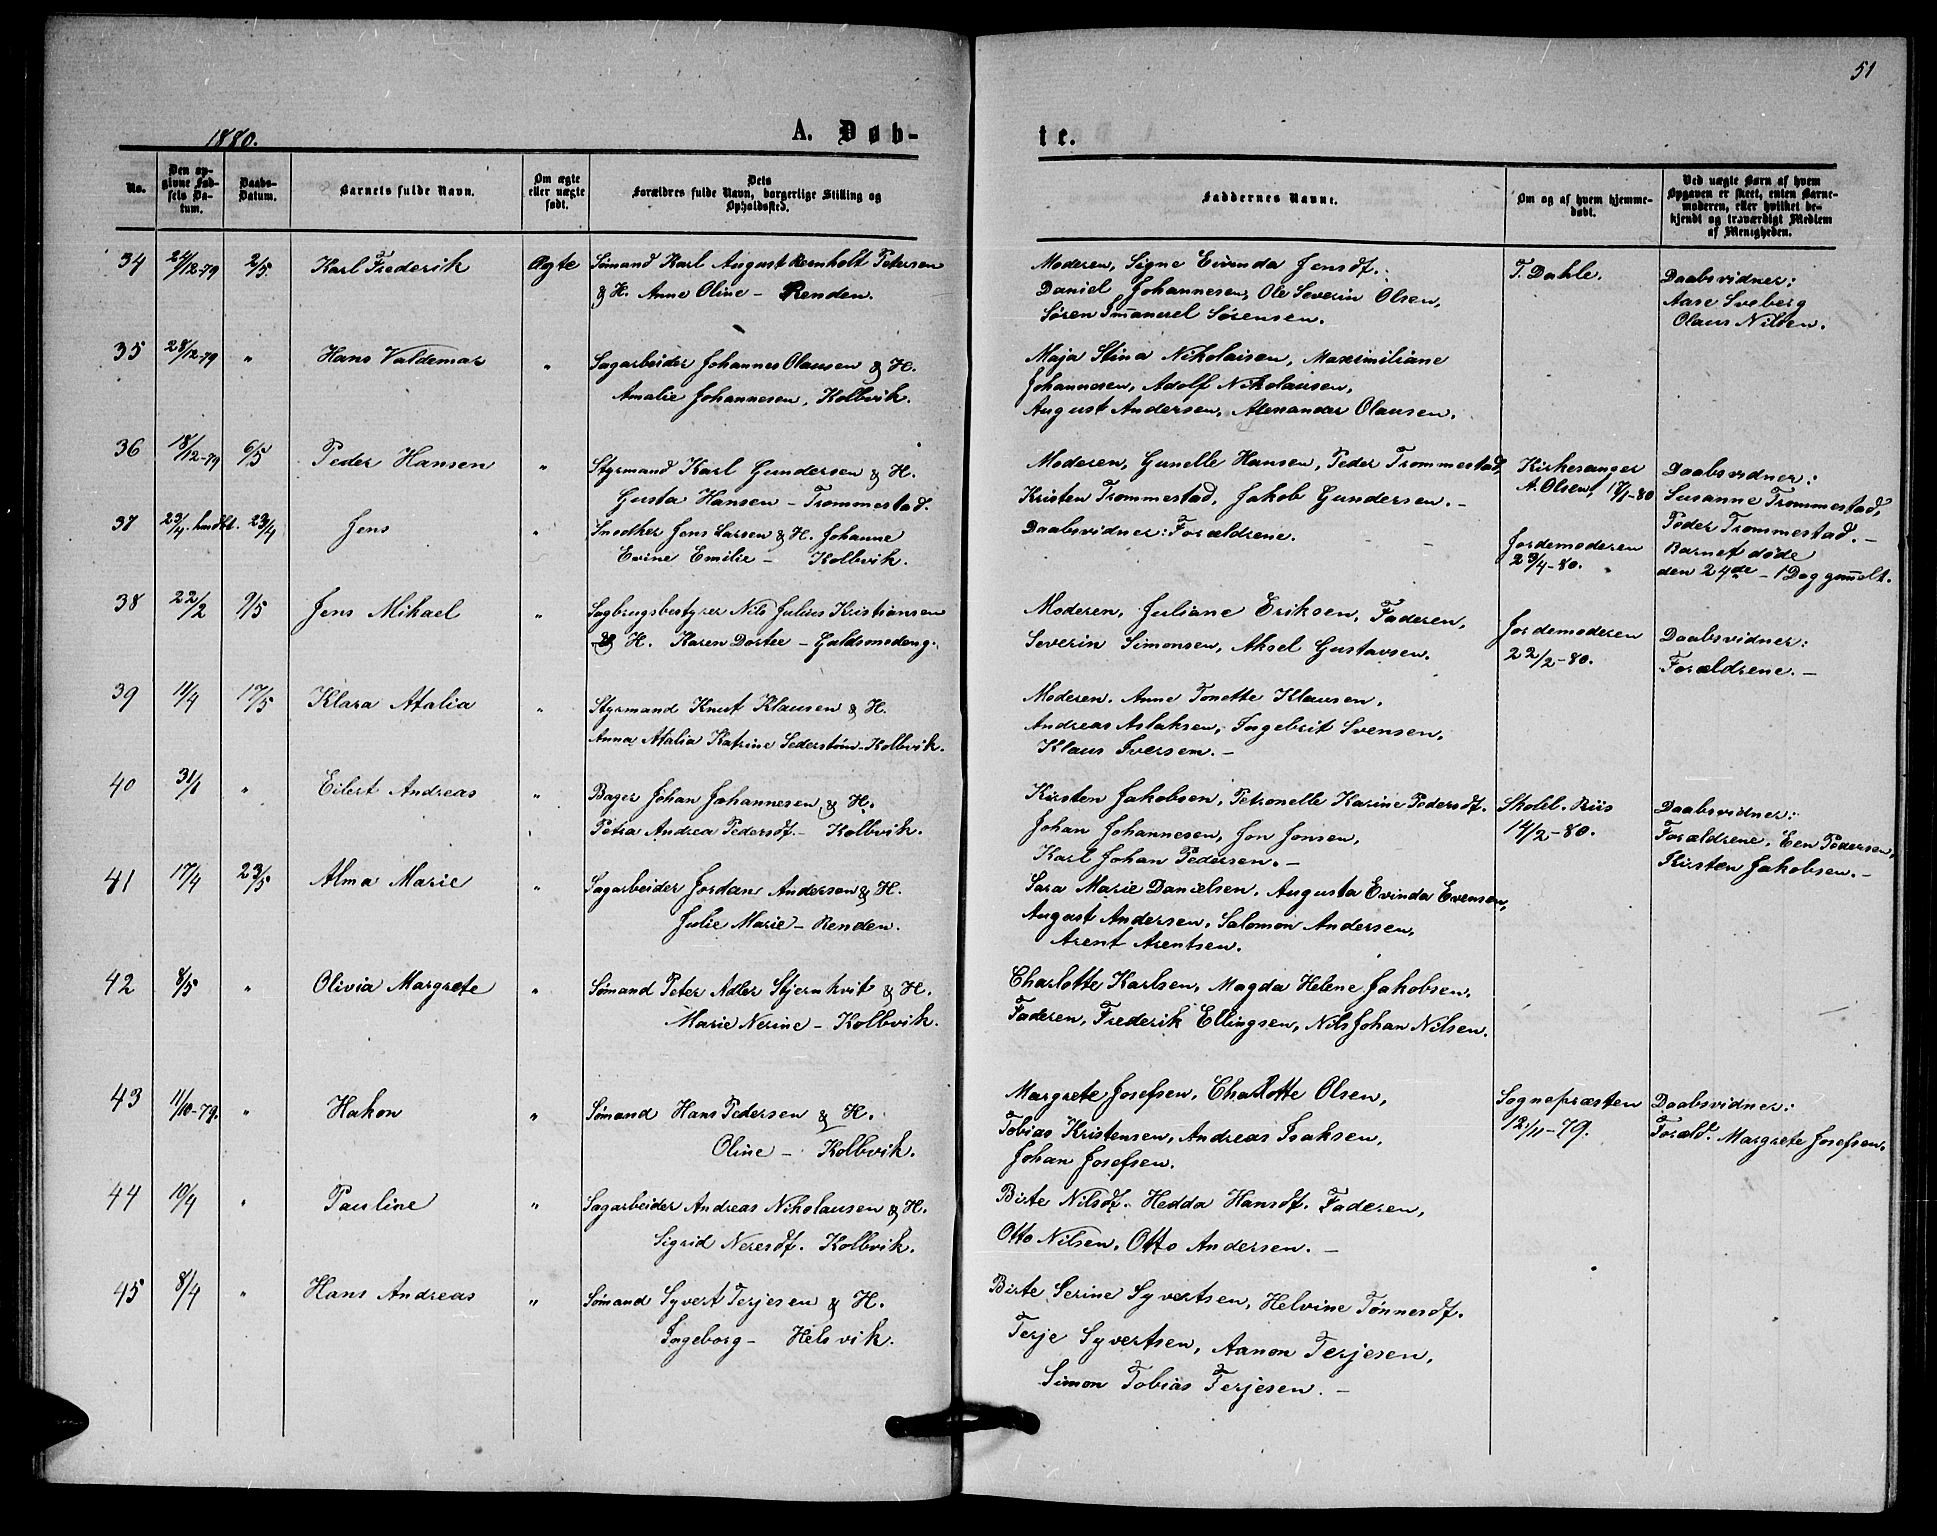 51
1880.
A. Døb-
te.
No.
Den op-
givne Fød-
sels Da-
tum.
Daabs-
Datum.
Barnets fulde Navn.
Om ægte
eller uægte
født.
Dets
Forældres fulde Navn, borgerlige Stilling og
Opholdssted.
Faddernes Navne.
Om og af hvem hjemme-
døbt.
Ved uægte Barn af hvem
Opgaven er skeet, enten Barne-
moderen, eller hvilket be-
kjendt og troværdigt Medlem
af Menigheden.
34 24/12-79 2/5. Karl Frederik Ægte Sømand Karl August Rernholt Petersen
& H. Anne Oline - Renden.
Moderen, Signe Eivinda Jensdt.
Daniel Johannesen, Ole Severin Olsen,
Søren Imanuel Sørensen.
T. Dahle.
Daabsvidner:
Aase Sveberg
Olaus Nilsen.
35 28/12-79 " Hans Valdemar " Sagarbeider Johannes Olausen & H.
Amalie Johannesen, Kolbvik.
Maja Stina Nikolaisen, Maximiliane
Johannesen, Adolf Nikolausen,
August Andersen, Alexander Olausen.
36 18/12-79 6/5 Peder Hansen " Styrmand Karl Gundersen & H.
Gusta Hansen - Trommestad.
Moderen, Gunelle Hansen, Peder Trommestad,
Kristen Trommestad, Jakob Gundersen. -
Kirkesanger
A. Olsen, 17/1-80
Daabsvidner:
Susanne Trommestad,
Peder Trommestad. -
37 23/4. hmdbt. 23/4 Jens " Snedker Jens Larsen & H. Johanne
Evine Emilie - Kolbvik.
Daabsvidner: Forældrene.
Jordemoderen
23/4-80.
Barnet døde
den 24de - 1 Dag gammelt.
38 22/2 9/5 Jens Mikael " Sagbrugsbestyrer Nils Julius Kristiansen
& H. Karen Dortee - Guldsmedeng.
Moderen, Juliane Eriksen, Faderen,
Severin Simonsen, Aksel Gustavsen.
Jordemoderen
22/2-80.
Daabsvidner:
Forældrene. -
39 11/4 17/5 Klara Atalia " Styrmand Knut Klausen & H.
Anna Atalia Katrine Sederstøm - Kolbvik.
Moderen. Anne Tonette Klausen,
Andreas Aslaksen, Ingebrit Svensen,
Klaus Iversen. -
40 31/1 " Eilert Andreas " Bager Johan Johannesen & H.
Petra Andrea Pedersdt. - Kolbvik.
Kirsten Jakobsen, Petronelle Karine Pedersdt.
Johan Johannesen, Jon Jonsen,
Karl Johan Pedersen. -
Skolel. Riis
14/2-80.
Daabsvidner:
Forældrene, Een Pedersen,
Kirsten Jakobsen. -
41 17/4 23/5 Alma Marie " Sagarbeider Jordan Anderson & H.
Julie Marie - Renden.
Sara Marie Danielsen, Augusta Evinda Evensen,
August Andersen, Salomon Andersen,
Arent Arentsen.
42 8/5 " Olivia Margrete " Sømand Peter Adler Stjernhvit & H.
Marie Nerine - Kolbvik.
Charlotte Karlsen, Magda Helene Jakobsen,
Faderen, Frederik Ellingsen, Nils Johan Nilsen.
43 11/10-79. " Hakon " Sømand Hans Pedersen & H.
Oline - Kolbvik.
Margrete Josefsen, Charlotte Olsen,
Tobias Kristensen, Andreas Isaksen,
Johan Josefsen.
Sognepræsten
12/11-79.
Daabsvidner:
Foræld. Margrete Josefsen.
44 10/4 " Pauline " Sagarbeider Andreas Nikolausen & H.
Sigrid Neresdt. Kolbvik.
Birte Nilsdt. Hedda Hansdt. Faderen,
Otto Nilsen, Otto Andersen. -
45 8/4 " Hans Andreas " Sømand Syvert Terjesen & H.
Ingeborg - Helsvik.
Birte Serine Syvertsen, Helvine Tønnesdt.
Terje Syvertsen, Aanon Terjesen,
Simon Tobias Terjesen. -